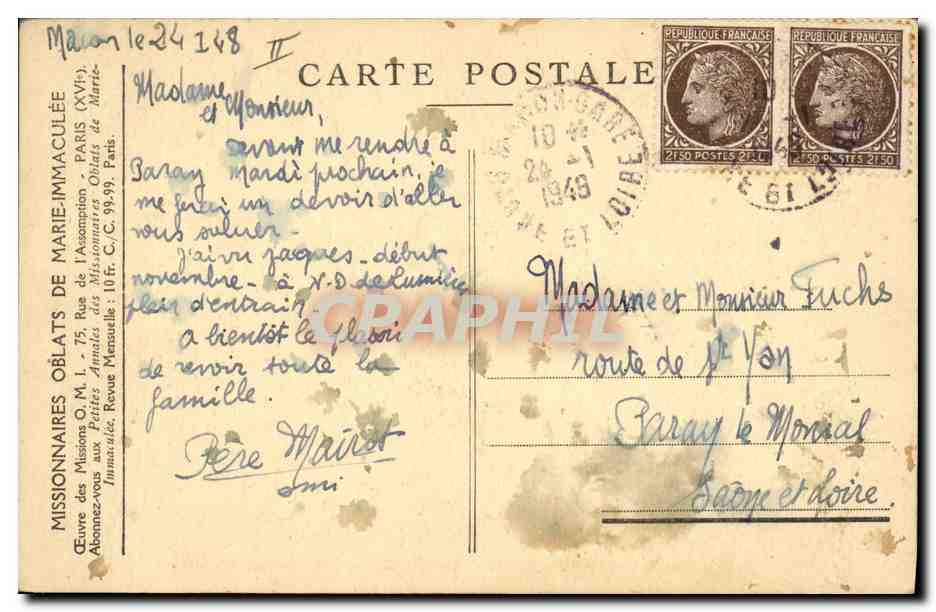 Macon le 24 1 48
II
CARTE POSTALE
REPUBLIQUE FRANÇAISE REPUBLIQUE FRANÇAISE
2F50 POSTES 2F50 2F50 POSTES 2F50
MACON-GARE
10 H
24 -1
1948
SAONE ET LOIRE
Madame
et Monsieur,
devant me rendre à
Paray Mardi prochain, je
me ferai un devoir d'aller
vous saluer.
J'ai vu Jacques - début
novembre - à N.D. de Lumières
plein d'entrain
A bientôt le plaisir
de revoir toute la
famille.
Père Mairot
omi
Madame et Monsieur Fuchs
route de St Yan
Paray le Monial
Saône et Loire.
MISSIONNAIRES OBLATS DE MARIE-IMMACULÉE
Œuvre des Missions O. M. I. - 75, Rue de l'Assomption - PARIS (XVIe).
Abonnez-vous aux Petites Annales des Missionnaires Oblats de Marie-
Immaculée, Revue Mensuelle : 10 fr. C./C. 99-99. Paris
CPAPHIL